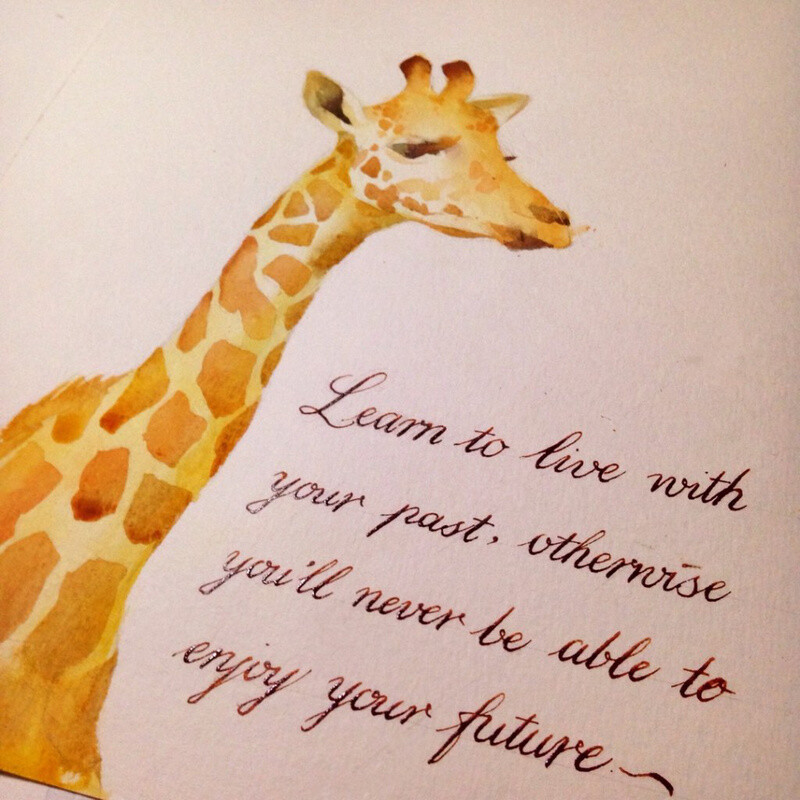 Learn to live with
your past, otherwise
you'll never be able to
enjoy your future~